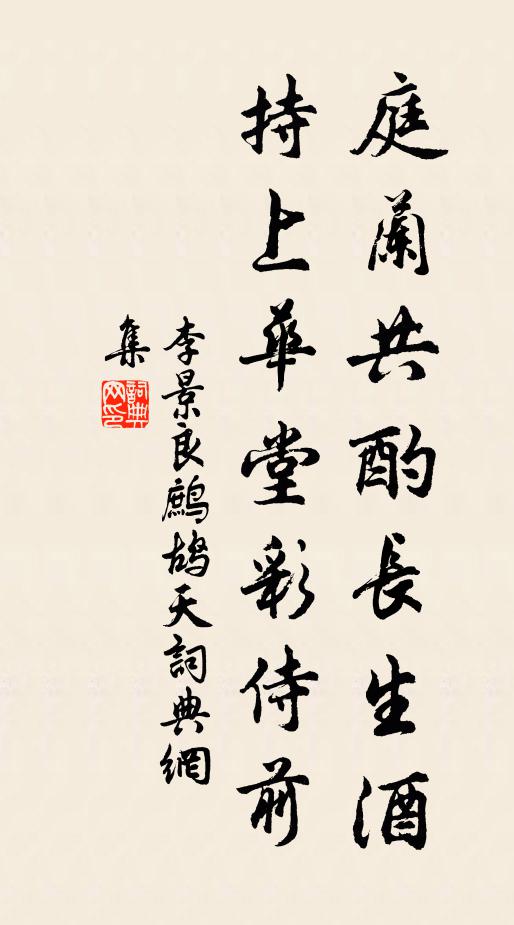 庭蘭共酌長生酒
持上華堂彩侍前
李景良鷓鴣天詞典網
集
詞典網印